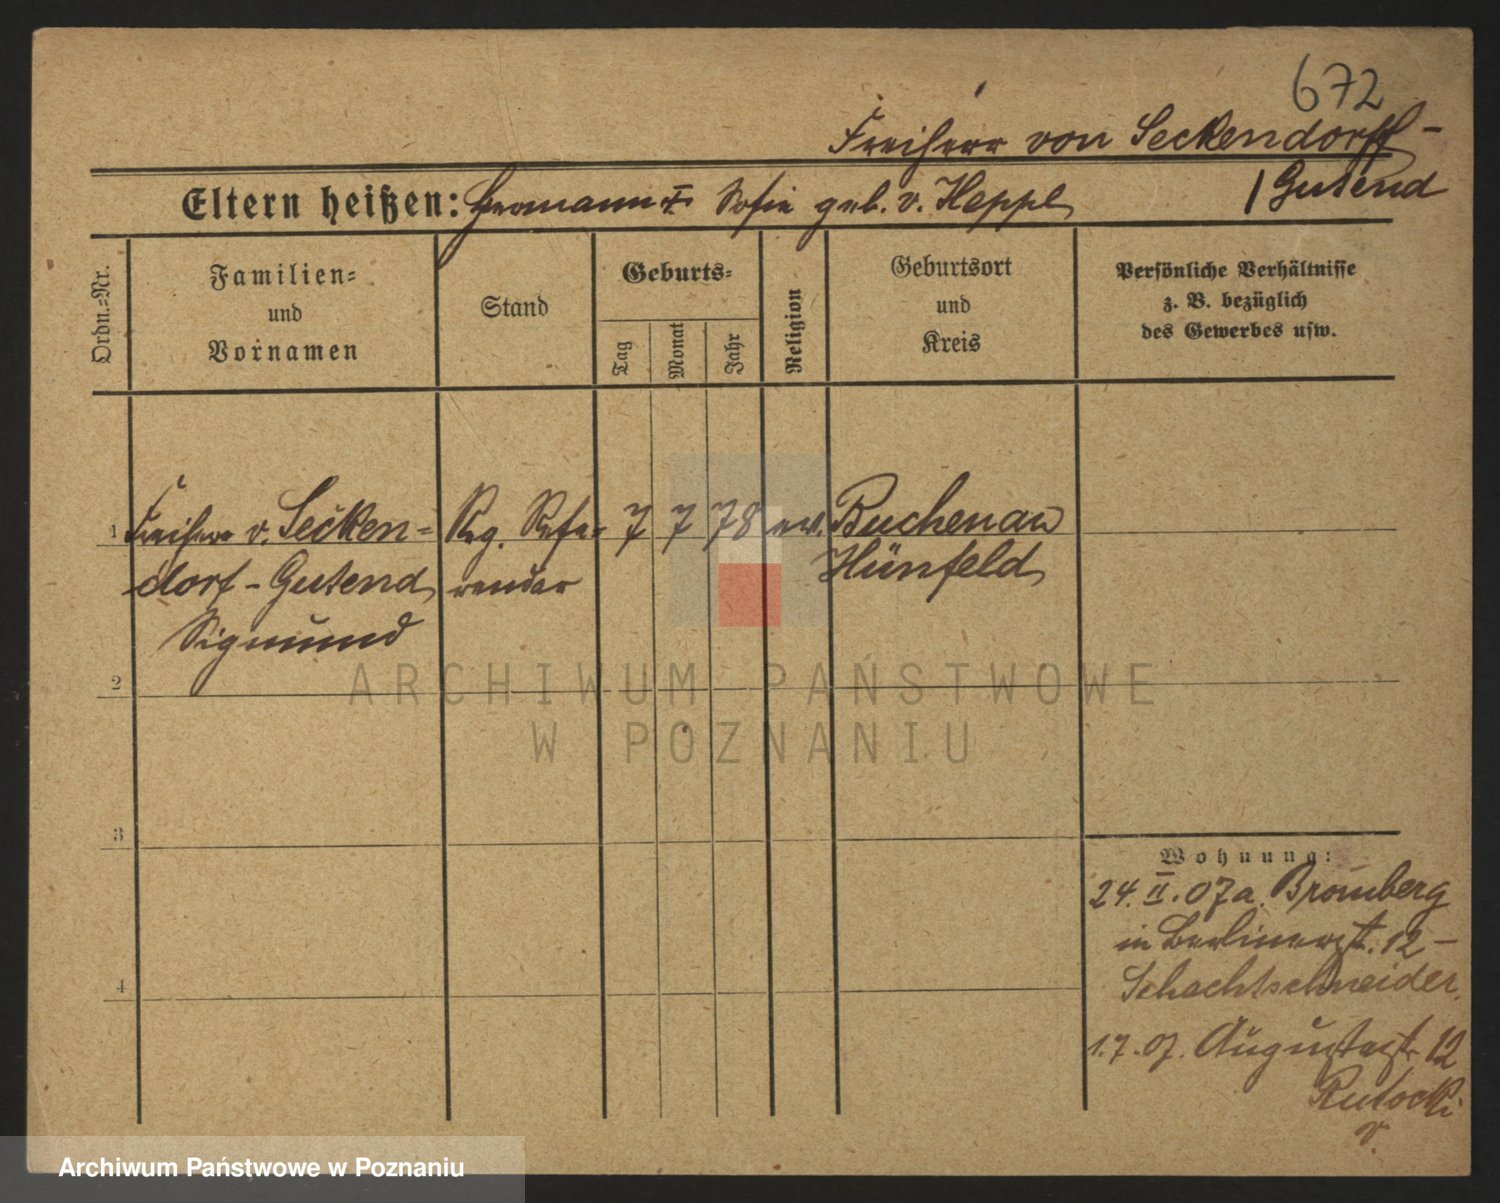 672
Freiherr von Seckendorff-
Eltern heißen: Hermann Sofie geb. v. Heppe / Gutend
Ordn.-Nr.
Familien-
und
Vornamen
Stand
Geburts-
Tag
Monat
Jahr
Religion
Geburtsort
und
Kreis
Persönliche Verhältnisse
z. B. bezüglich
des Gewerbes usw.
1 Freiherr v. Secken- Reg. Refe- 7 7 78 ev. Buchenau
dorf-Gutend rendar Hünfeld
Sigmund
2
3
4
Wohnung:
24. II. 07 a. Bromberg
in Berlinerst. 12 -
Schachtschneider.
1.7.07. Augustast 12
Rutocki
v
ARCHIWUM PAŃSTWOWE
W POZNANIU
Archiwum Państwowe w Poznaniu